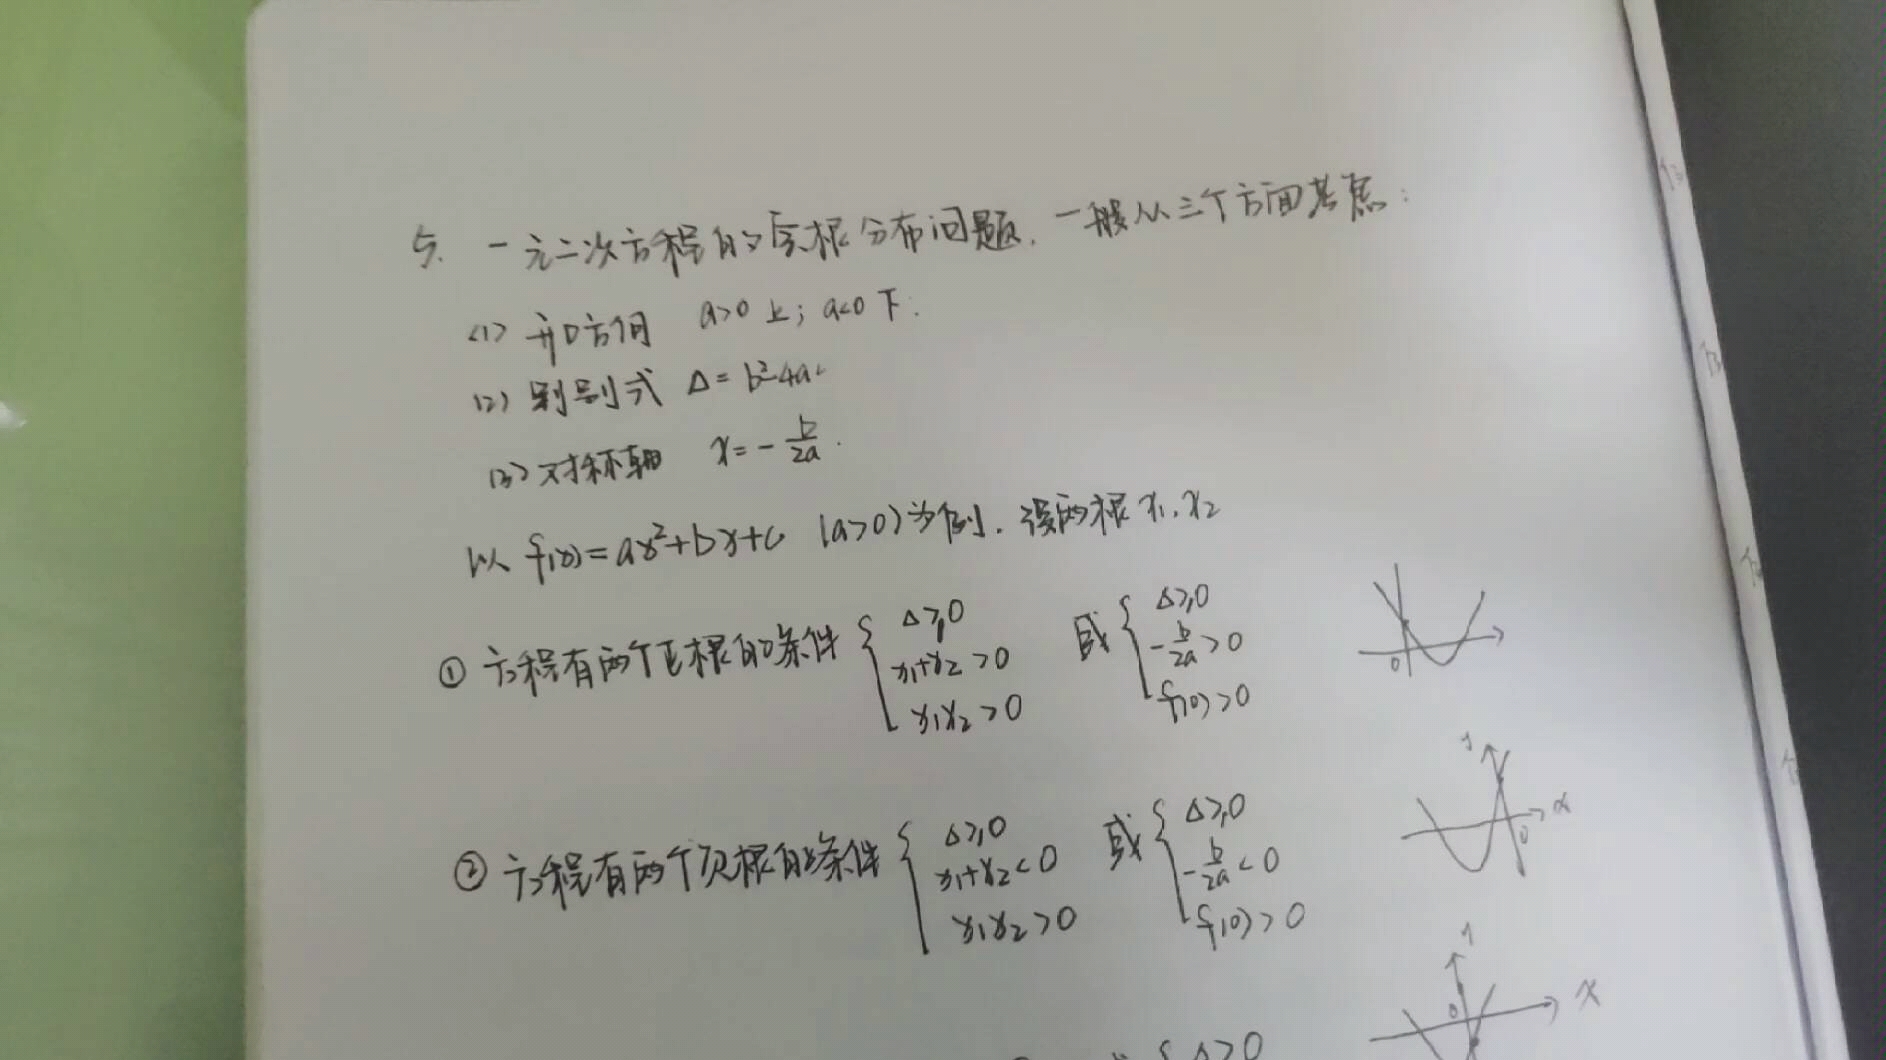 5. 一元二次方程的实根分布问题，一般从三个方面考虑：
(1) 开口方向 a>0 上; a<0 下.
(2) 判别式 Δ= b²-4ac
(3) 对称轴 x=-b/2a.
以 f(x)=ax²+bx+c (a>0)为例. 设两根 x₁, x₂
① 方程有两个正根的条件 { Δ≥0 x₁+x₂>0 x₁x₂>0 或 { Δ≥0 -b/2a>0 f(0)>0
0
② 方程有两个负根的条件 { Δ≥0 x₁+x₂<0 x₁x₂>0 或 { Δ≥0 -b/2a<0 f(0)>0
y x 0
y 0 x
{ Δ>0